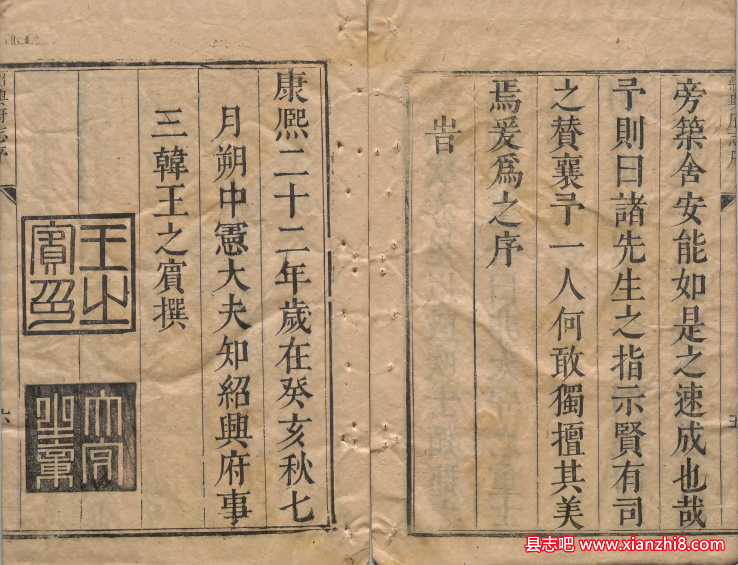 旁築舍安能如是之速成也哉
予則曰諸先生之指示賢有司
之賛襄予一人何敢獨擅其美
焉爰爲之序
旹
康熈二十二年歲在癸亥秋七
月朔中憲大夫知紹興府事
三韓王之賔撰
王之賔印
紹興府志序
五
六
县志吧 www.xianzhi8.com